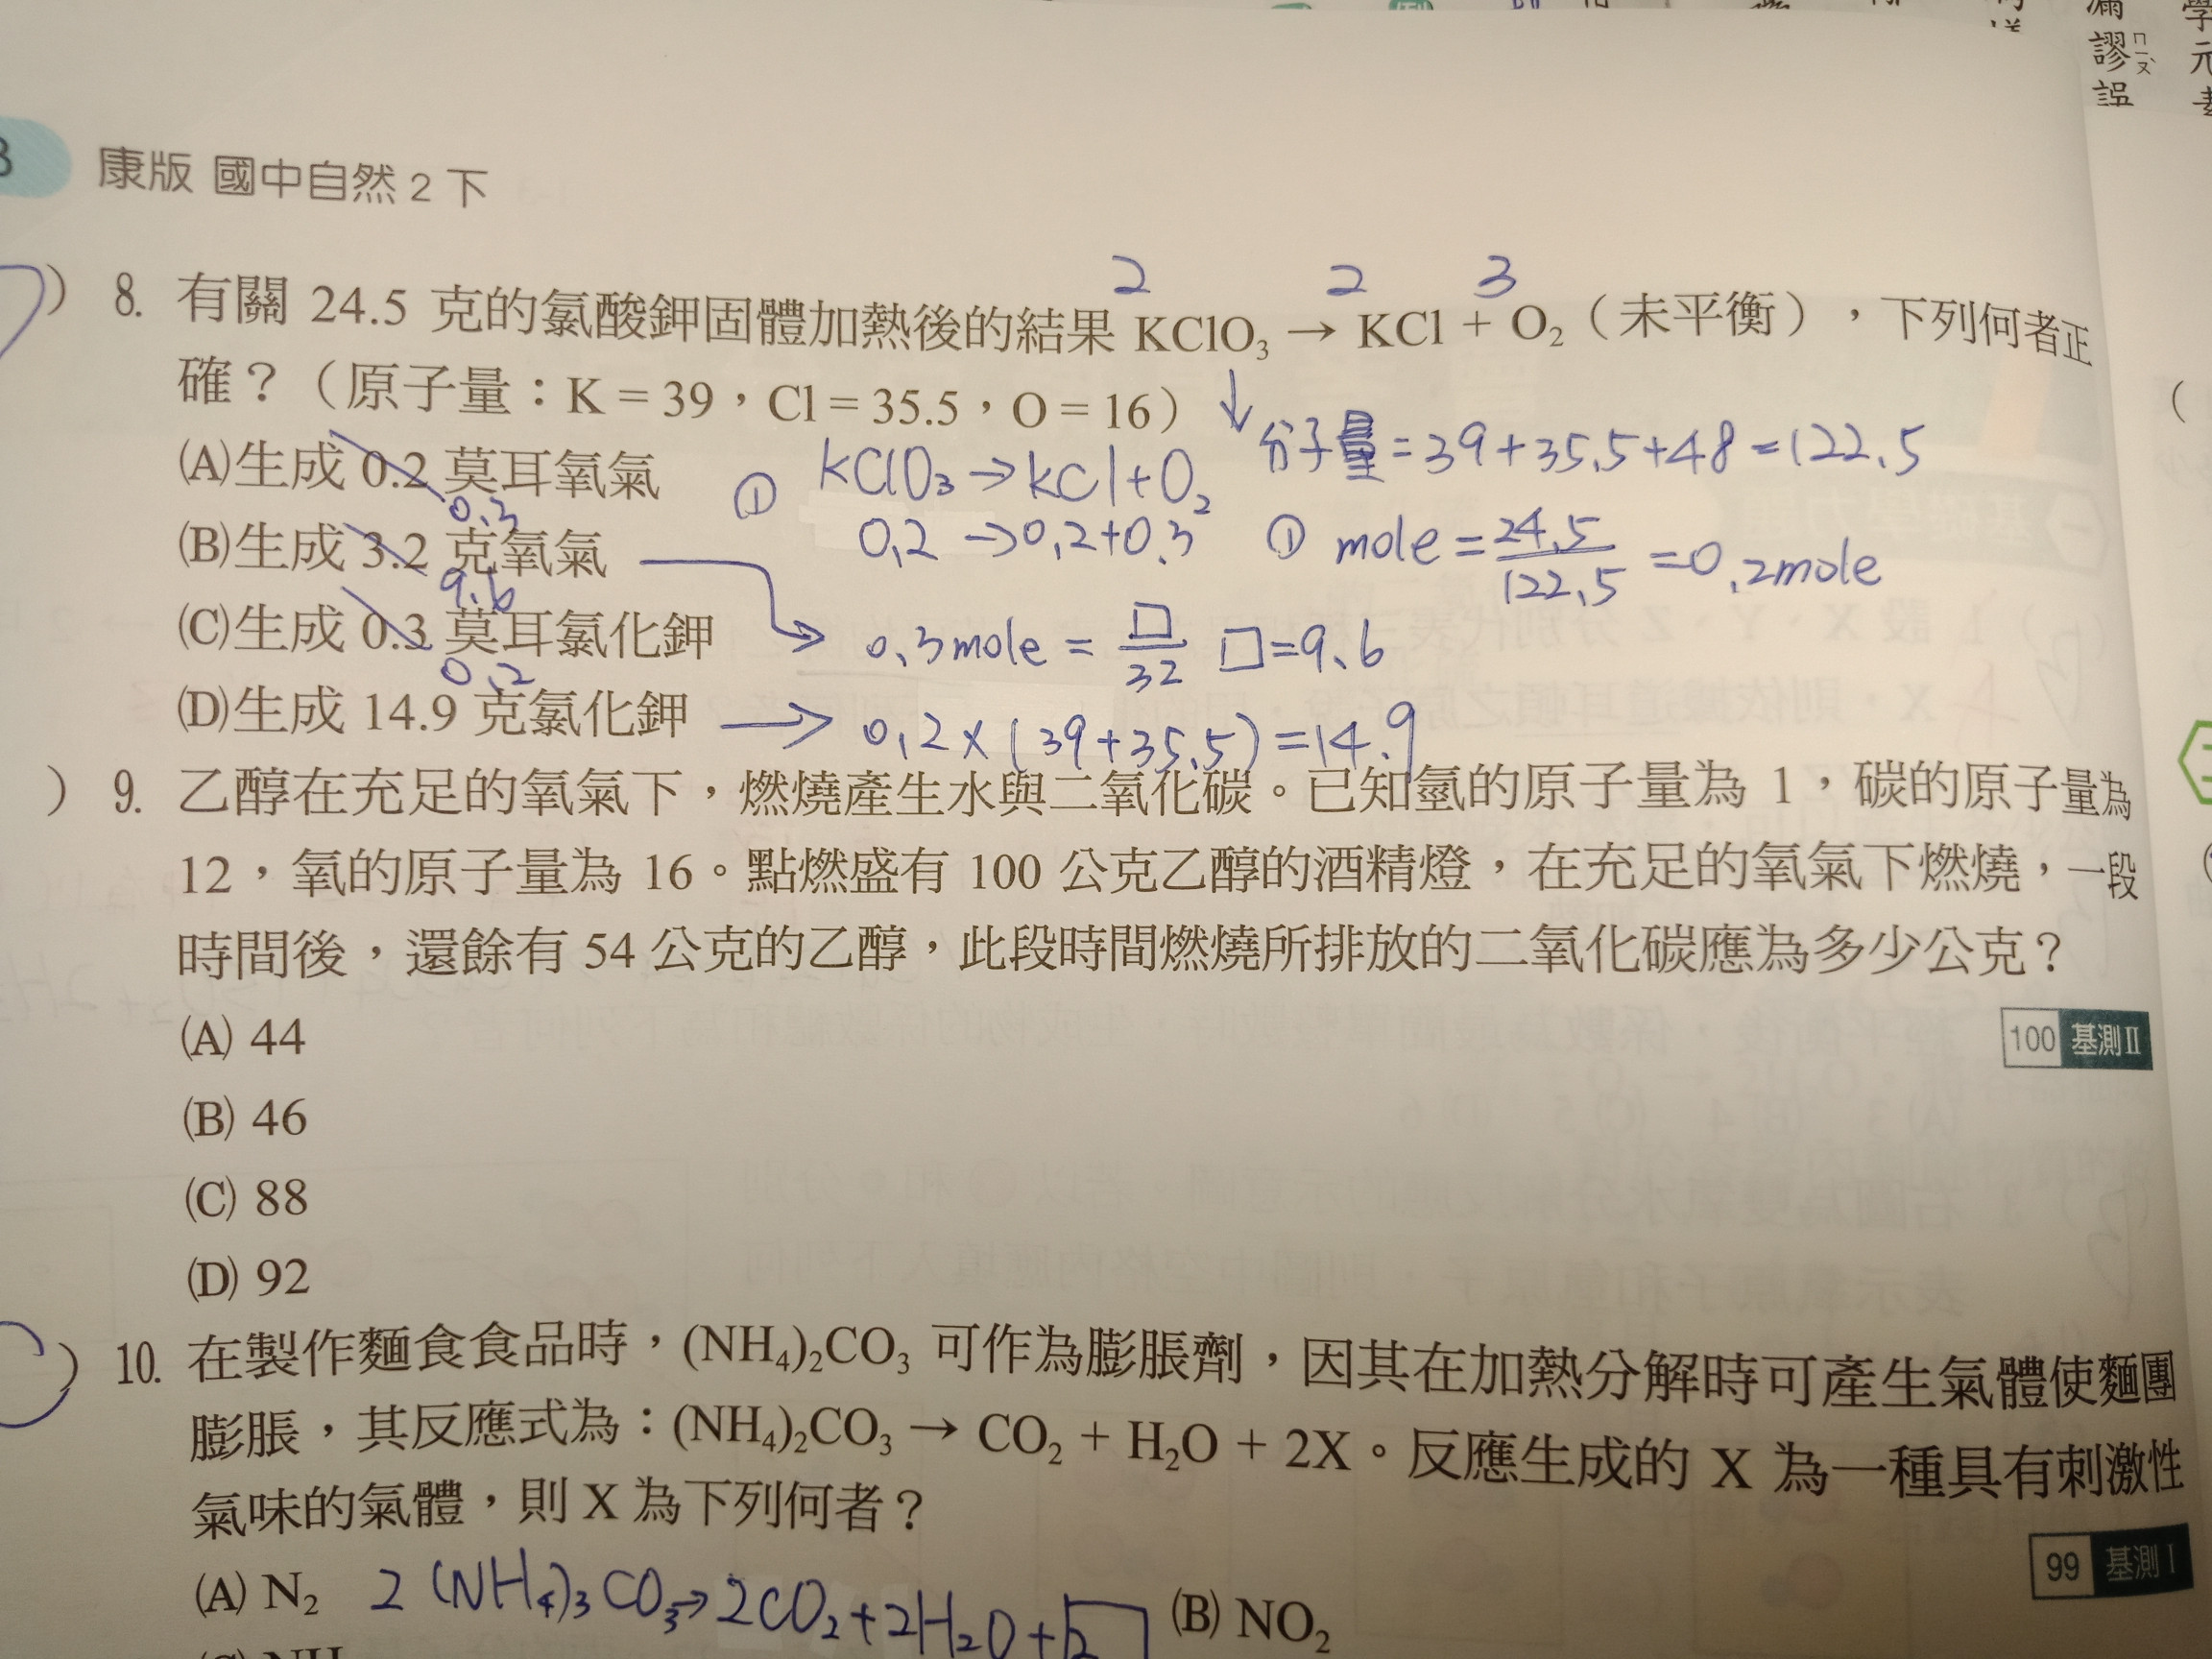 康版 國中自然 2 下
) 8. 有關 24.5 克的氯酸鉀固體加熱後的結果 KClO₃ → KCl + O₂（未平衡），下列何者正
2 2 3
確？（原子量：K = 39，Cl = 35.5，O = 16）
↓分子量=39+35.5+48=122.5
(A)生成 0.2 莫耳氧氣
0.3
① KClO₃→KCl+O₂
0.2→0.2+0.3
① mole=24.5/122.5=0.2mole
(B)生成 3.2 克氧氣
9.6
0.3mole=□/32 □=9.6
(C)生成 0.3 莫耳氯化鉀
0.2
(D)生成 14.9 克氯化鉀
→ 0.2×(39+35.5)=14.9
) 9. 乙醇在充足的氧氣下，燃燒產生水與二氧化碳。已知氫的原子量為 1，碳的原子量為
12，氧的原子量為 16。點燃盛有 100 公克乙醇的酒精燈，在充足的氧氣下燃燒，一段
時間後，還餘有 54 公克的乙醇，此段時間燃燒所排放的二氧化碳應為多少公克？
100 基測Ⅱ
(A) 44
(B) 46
(C) 88
(D) 92
) 10. 在製作麵食食品時，(NH₄)₂CO₃ 可作為膨脹劑，因其在加熱分解時可產生氣體使麵團
膨脹，其反應式為：(NH₄)₂CO₃ → CO₂ + H₂O + 2X。反應生成的 X 為一種具有刺激性
氣味的氣體，則 X 為下列何者？
99 基測Ⅰ
(A) N₂
2 (NH₄)₃CO₃→2CO₂+2H₂O+
(B) NO₂
謬誤